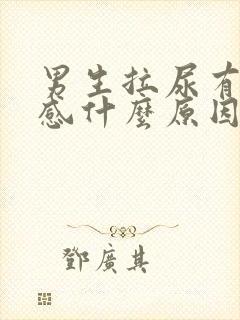 男生拉尿有
感什麼原因
鄧廣其